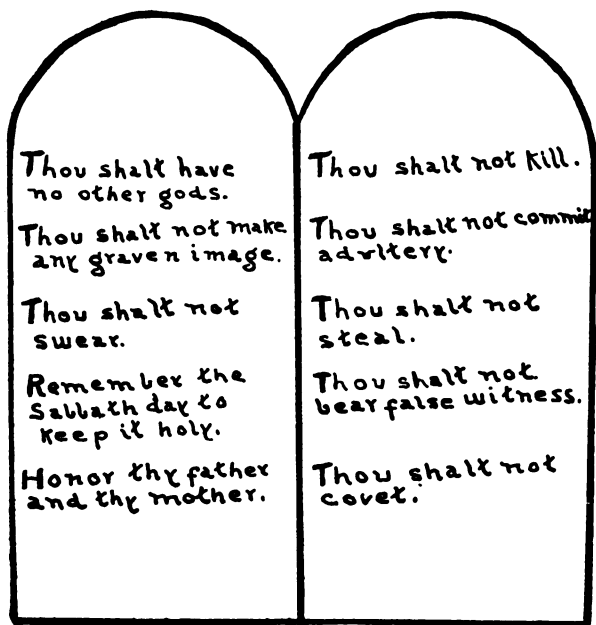 Thou shalt have
no other gods.
Thou shalt not make
any graven image.
Thou shalt not
swear.
Remember the
Sabbath day to
keep it holy.
Honor thy father
and thy mother.
Thou shalt not kill.
Thou shalt not commit
adultery.
Thou shalt not
steal.
Thou shalt not
bear false witness.
Thou shalt not
covet.